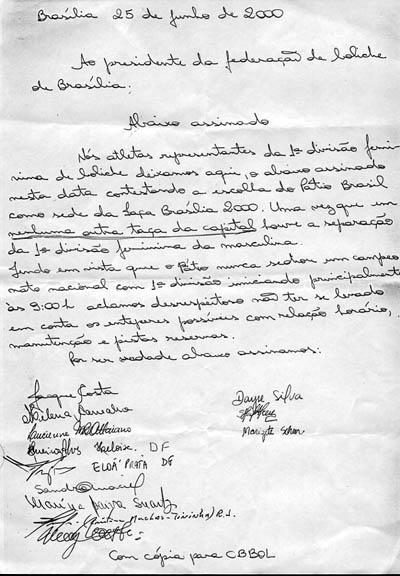 Brasília 25 de Junho de 2000
Ao presidente da federação de boliche
de Brasília:
Abaixo assinado
Nós atletas representantes da 1ª divisão femi
nina de boliche deixamos aqui, o abaixo assinado
nesta data contestando a escolha do Pátio Brasil
como sede da Taça Brasília 2000. Uma vez que em
nenhuma outra taça da capital houve a separação
da 1ª divisão feminina da masculina.
Tendo em vista que o Pátio nunca sediou um campeo
nato nacional com 1ª divisão iniciando principalmente
às 9:00h achamos desrespeitoso não ter se levado
em conta os
possíveis com relação horário,
manutenção e pistas reservas.
Por ser verdade abaixo assinamos:
Jaque Costa
Dayse Silva
Milena
Lucienne
Heloisa DF
ELOÁ PRATA DF
Sandra
Marisa
R.J.
Com cópia para CBBOL